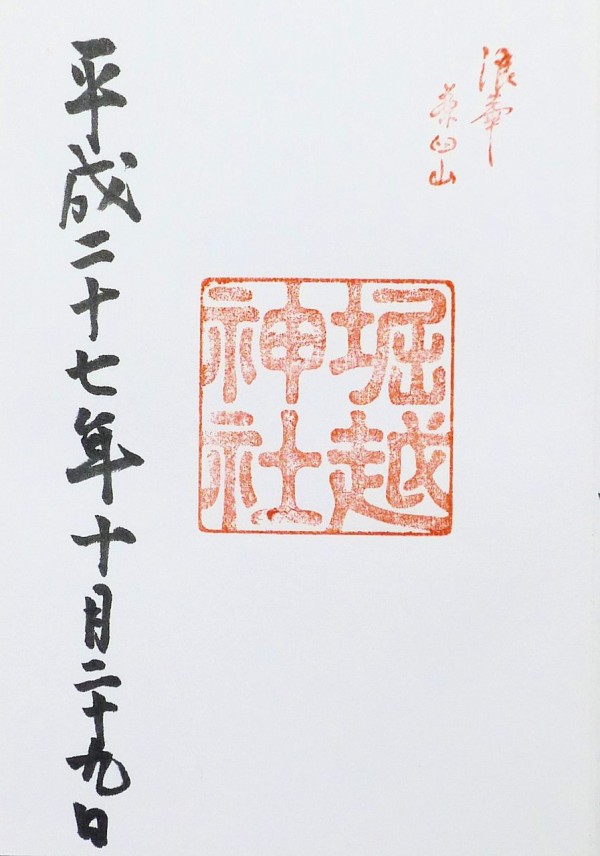 浪華
茶臼山
堀越
神社
平成二十七年十月二十九日